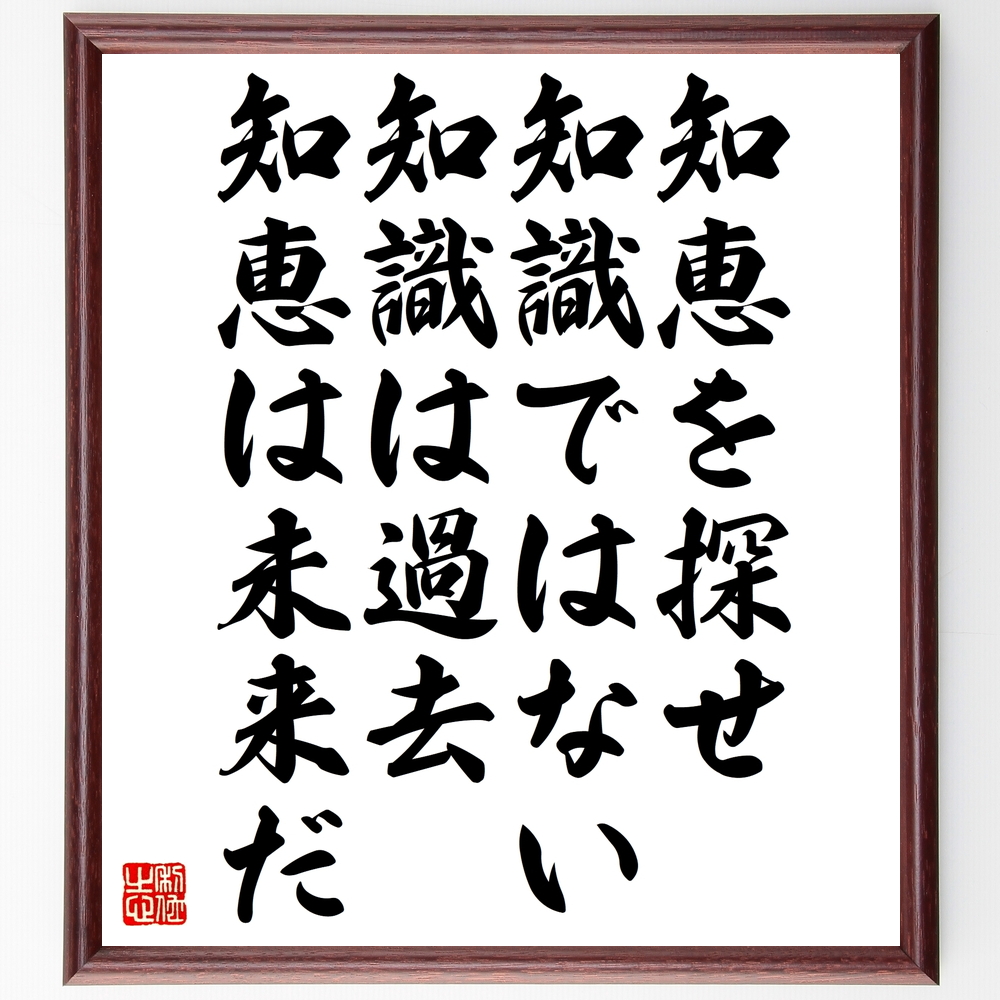 知恵を探せ
知識ではない
知識は過去
知恵は未来だ